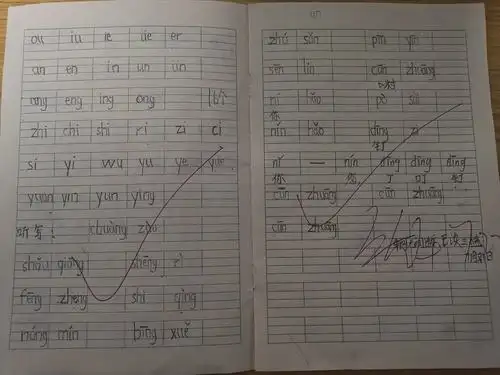 ou iu ie üe er
an en in un ün
ang eng ing ong
zhi chi shi ri zi ci
si yi wu yu ye yue
yuan yin yun ying
听写: chuàng zào
shāu guāng shēng rì
fēng zheng shì qíng
nóng mín bīng xuě
un
zhú sǔn pīn yīn
sēn lín cūn zhuāng
村
nǐ hǎo pò suì
你
nín hǎo dīng zi
钉
nǐ 一 nín dīng dīng dīng
你 您 丁 叮 钉
cūn zhuāng cūn zhuāng
cūn zhuāng